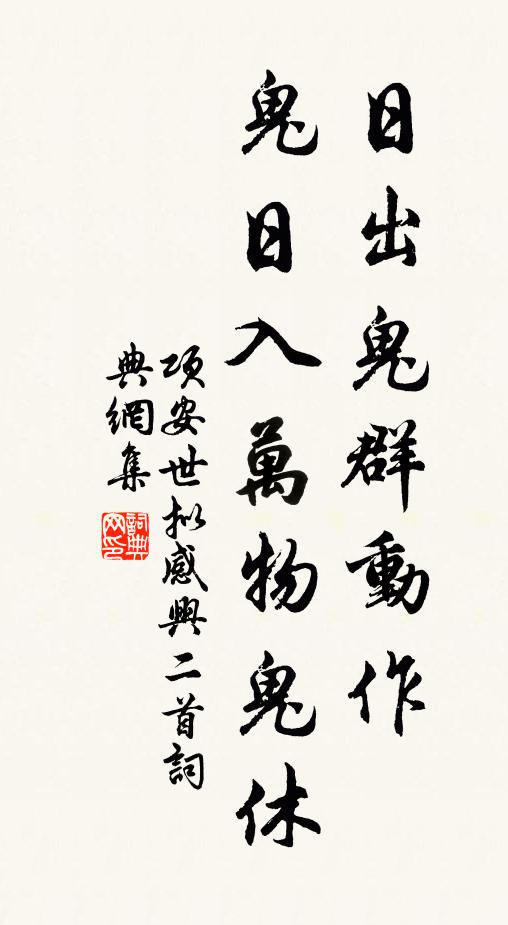 日出鬼群動作
鬼日入萬物鬼休
項安世拟感興二首詞
典網集
詞典
网印